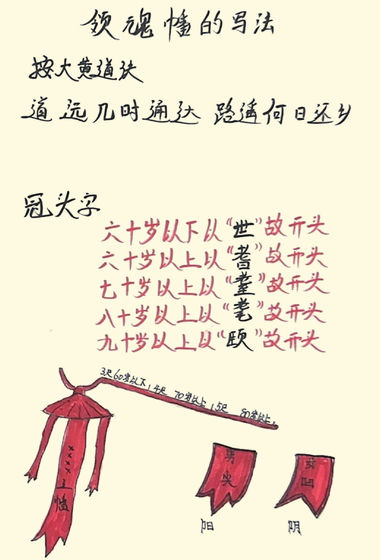 领魂幡的写法
按大黄道诀
道远几时通达 路遥何日还乡
冠头字
六十岁以下以“世”故开头
六十岁以上以“耆”故开头
七十岁以上以“耋”故开头
八十岁以上以“耄”故开头
九十岁以上以“颐”故开头
3尺60岁以下，4尺 70岁以上，5尺 80岁以上.
××××之幡
男尖
阳
女凹
阴